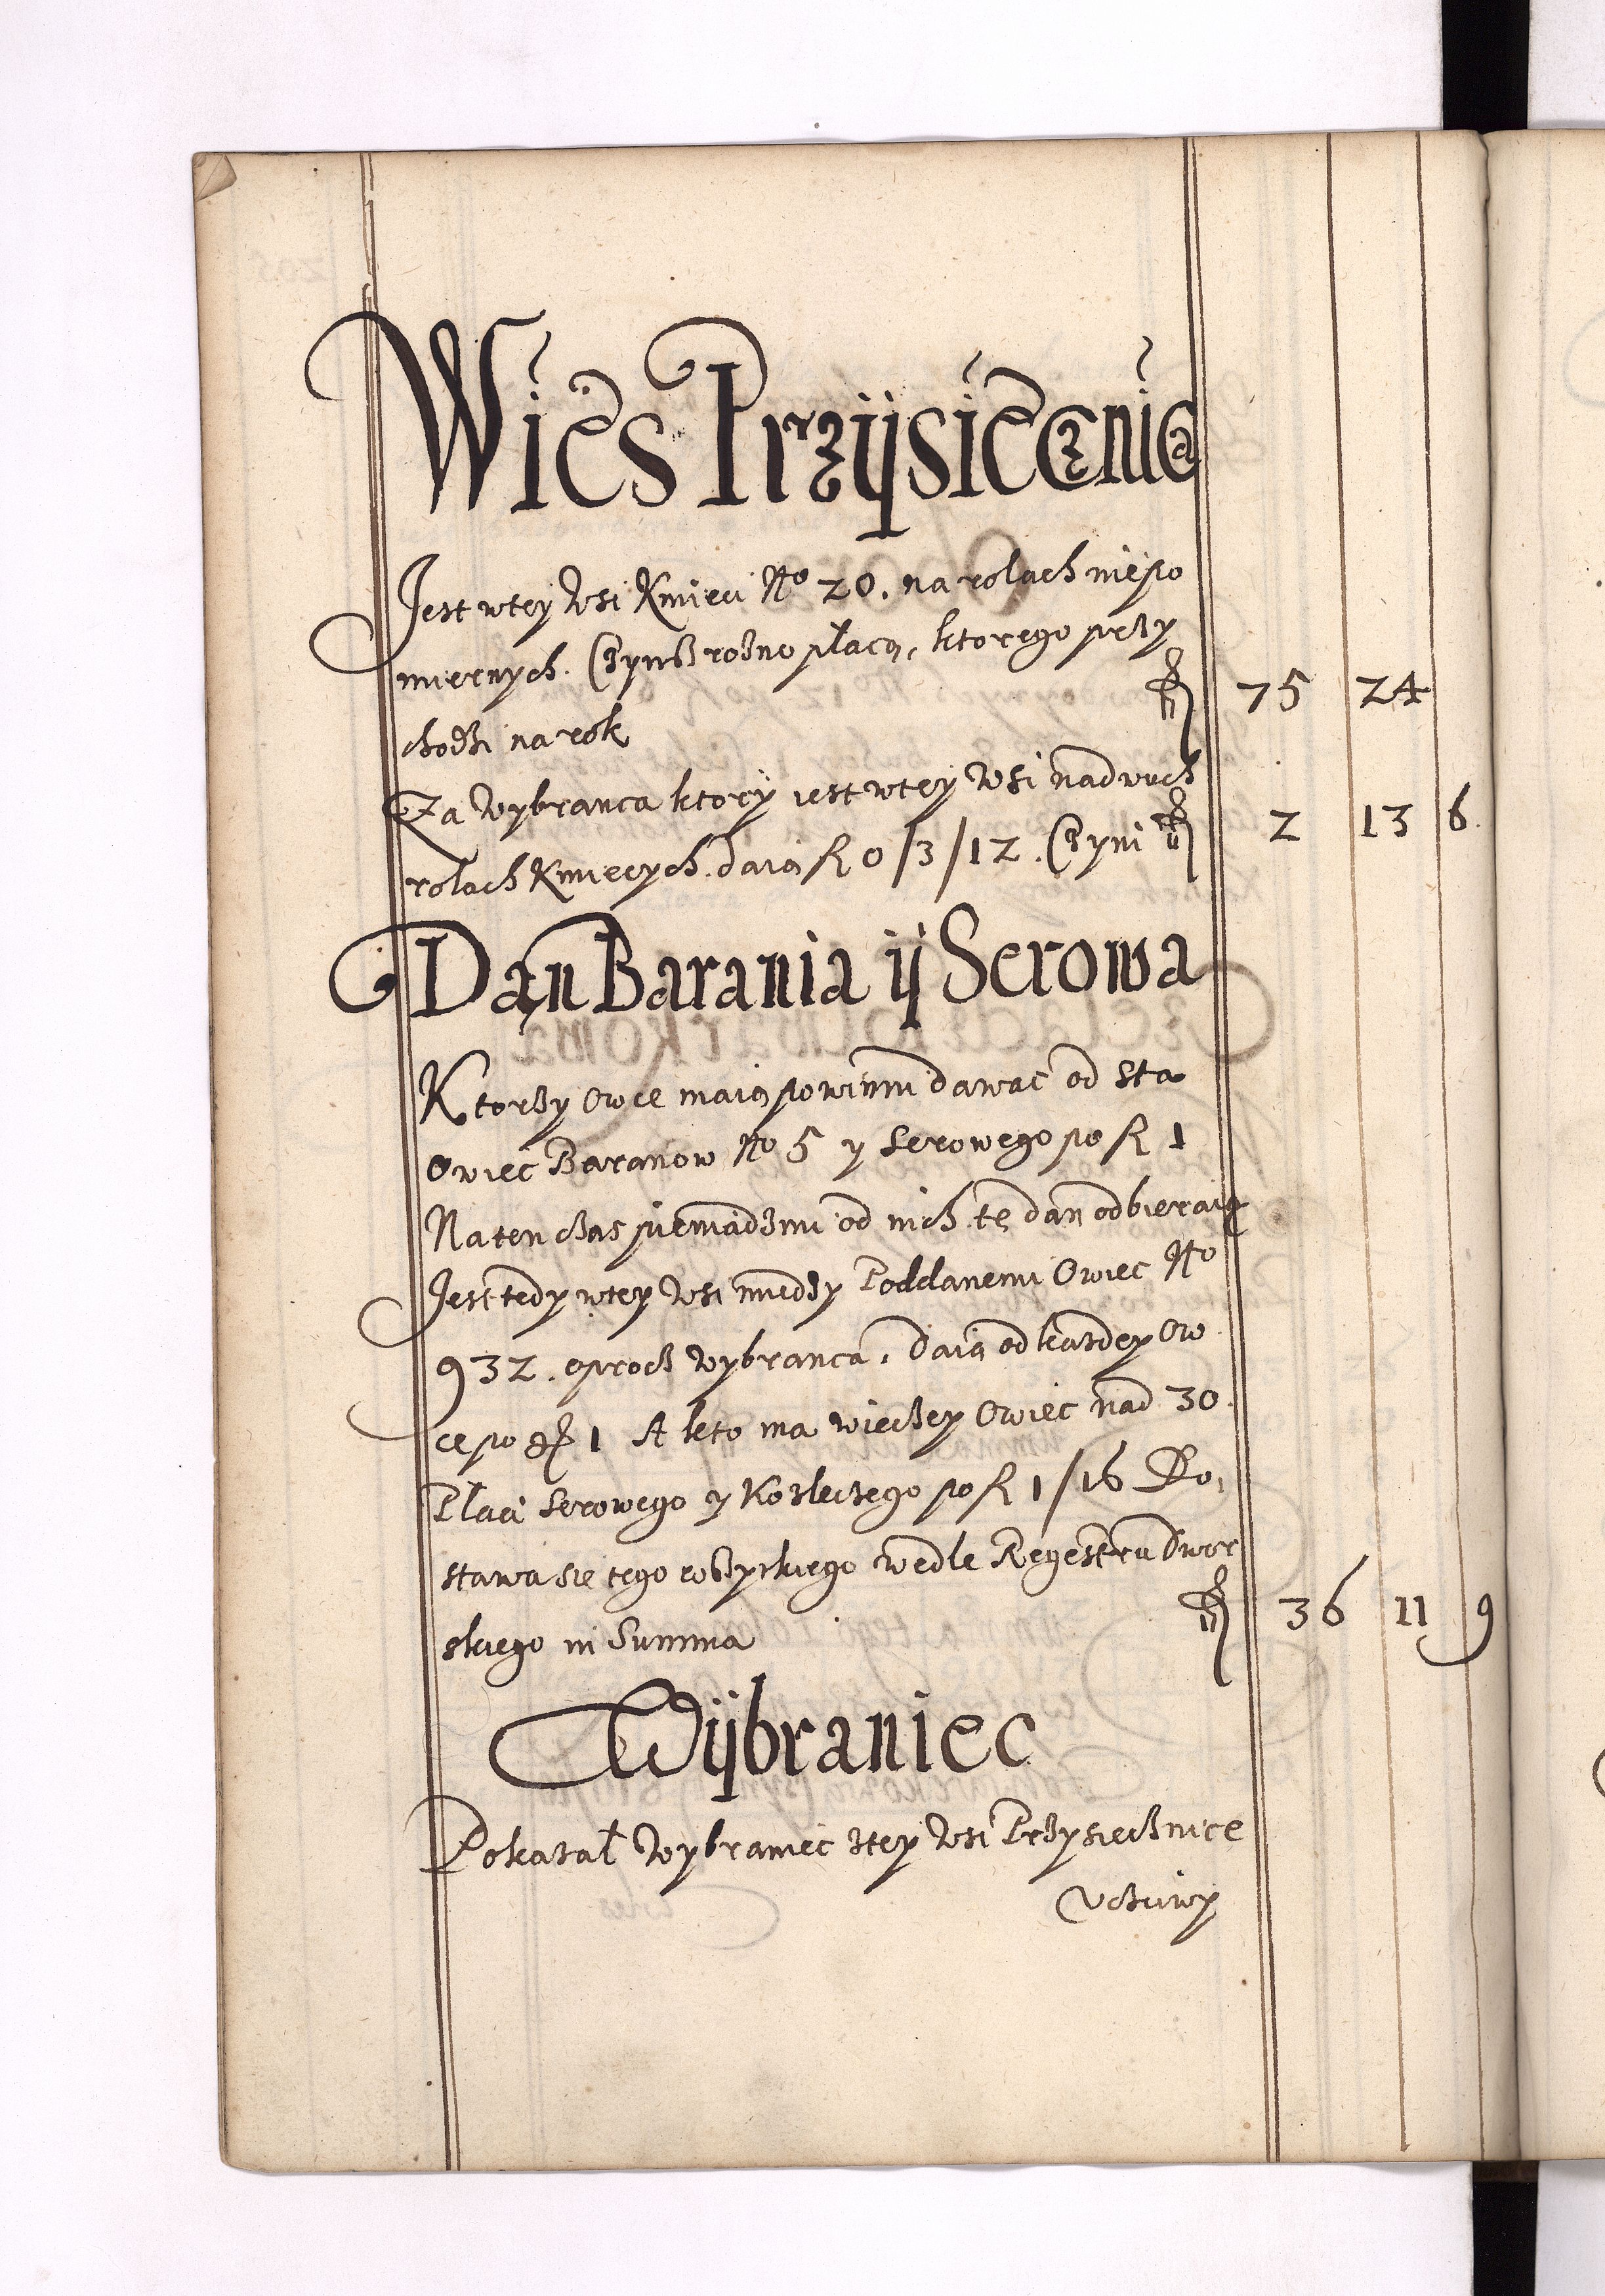 Wieś Przÿsiecznica
Jest w tey Wsi Kmieci No 20. na rolach niepo
miernych. Czynsz rożno płacą, ktorego przy
chodzi na rok fl 75 24
Za Wybranca ktory iest w tey Wsi na dwuch
rolach Kmiecych. daią fl 0/3/12. Czyni fl 2 13 6.
Dan Barania ÿ Serowa
Ktorzy Owce maią powinni dawac od sta
Owiec Baranow No 5 y serowego po fl 1
Na ten czas pieniądzmi od nich tę dan odbieraią
Jest tedy w tey Wsi miedzy Poddanemi Owiec No
932. oprocz Wybranca. Daią od kazdey Ow
ce po gr 1 A kto ma wieczey Owiec nad 30.
Płaci serowego y Kozleczego po fl 1/16 Do,
stawa sie tego wszytkiego wedle Regestru Dwor
skiego in Summa fl 36 11 9
Wÿbraniec
Pokazał Wybraniec z tey Wsi Przysiecznice
Vcziwy